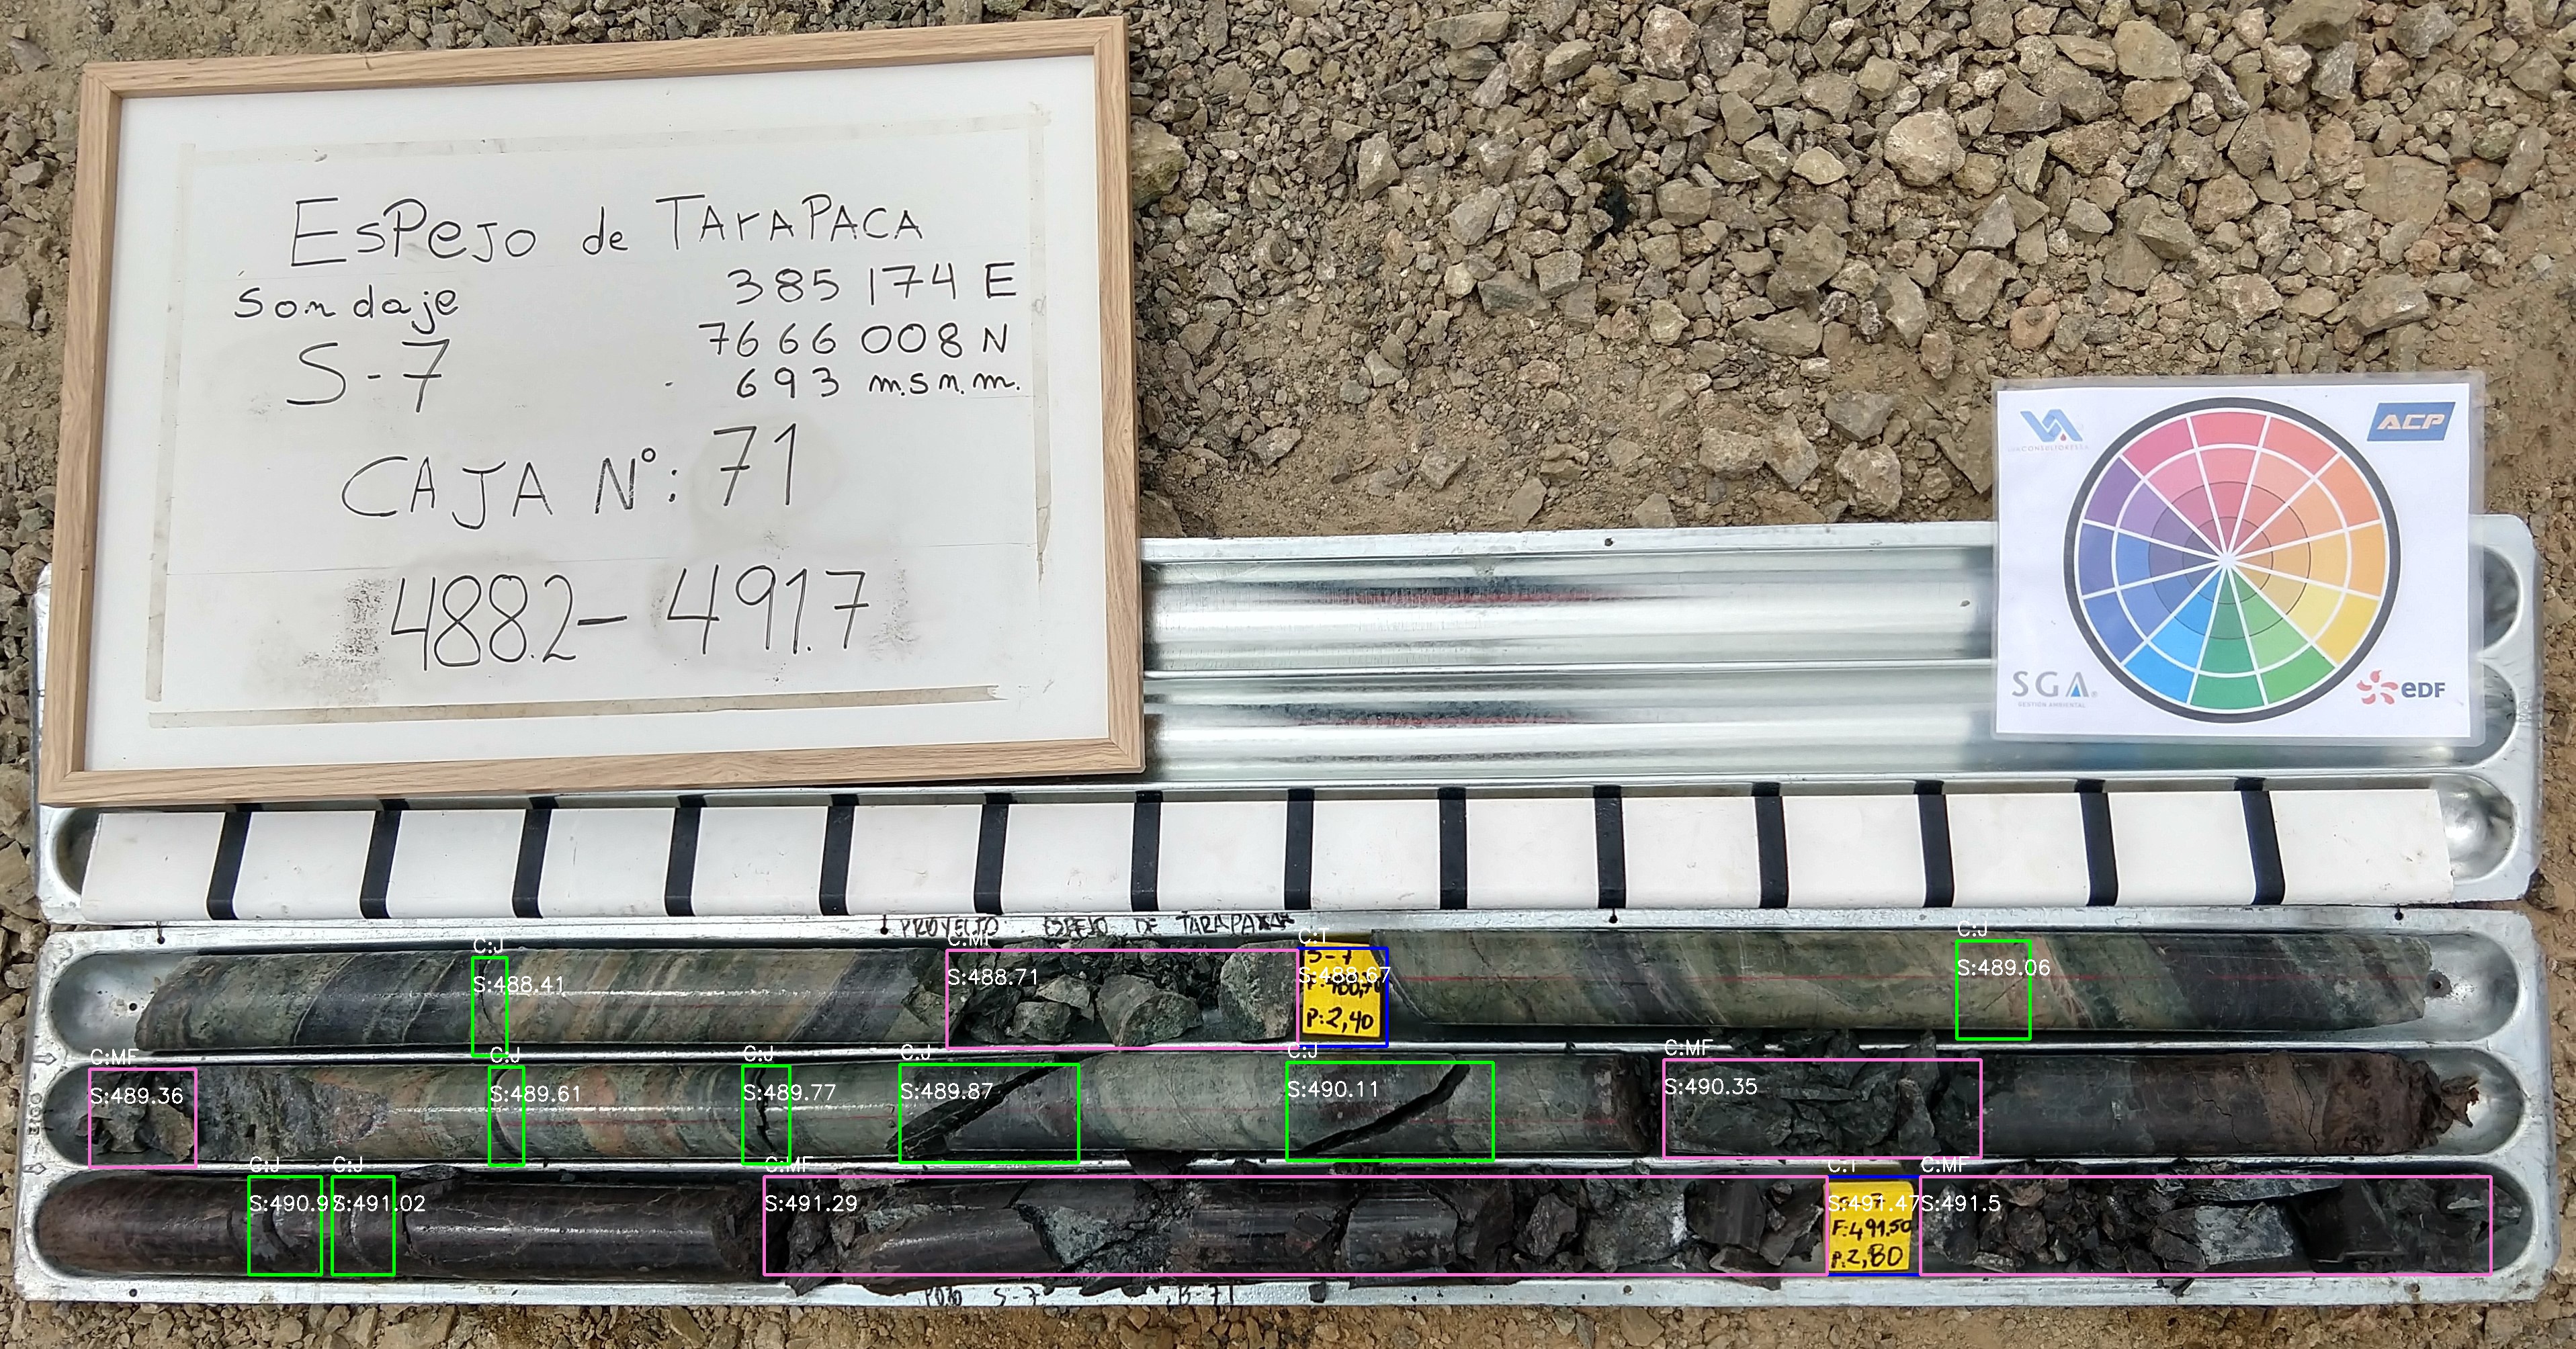 EsPeJo de TArAPACA
Sondaje
385174 E
7666 008 N
S-7
693 m.s.n.m.
CAJA N°: 71
488.2 - 491.7
ACP
SGA
GESTION AMBIENTAL
eDF
PROYECTO ESPEJO DE TARAPAKA
C:J
S:488.41
C:MF
S:488.71
C:T
S:488.67
S-7
P:2,40
C:J
S:489.06
C:MF
S:489.36
C:J
S:489.61
C:J
S:489.77
C:J
S:489.87
C:J
S:490.11
C:MF
S:490.35
C:J
S:490.97
C:J
S:491.02
C:MF
S:491.29
C:T
S:491.47
F:491.50
P:2,80
C:MF
S:491.5
POZO S-7 B-71